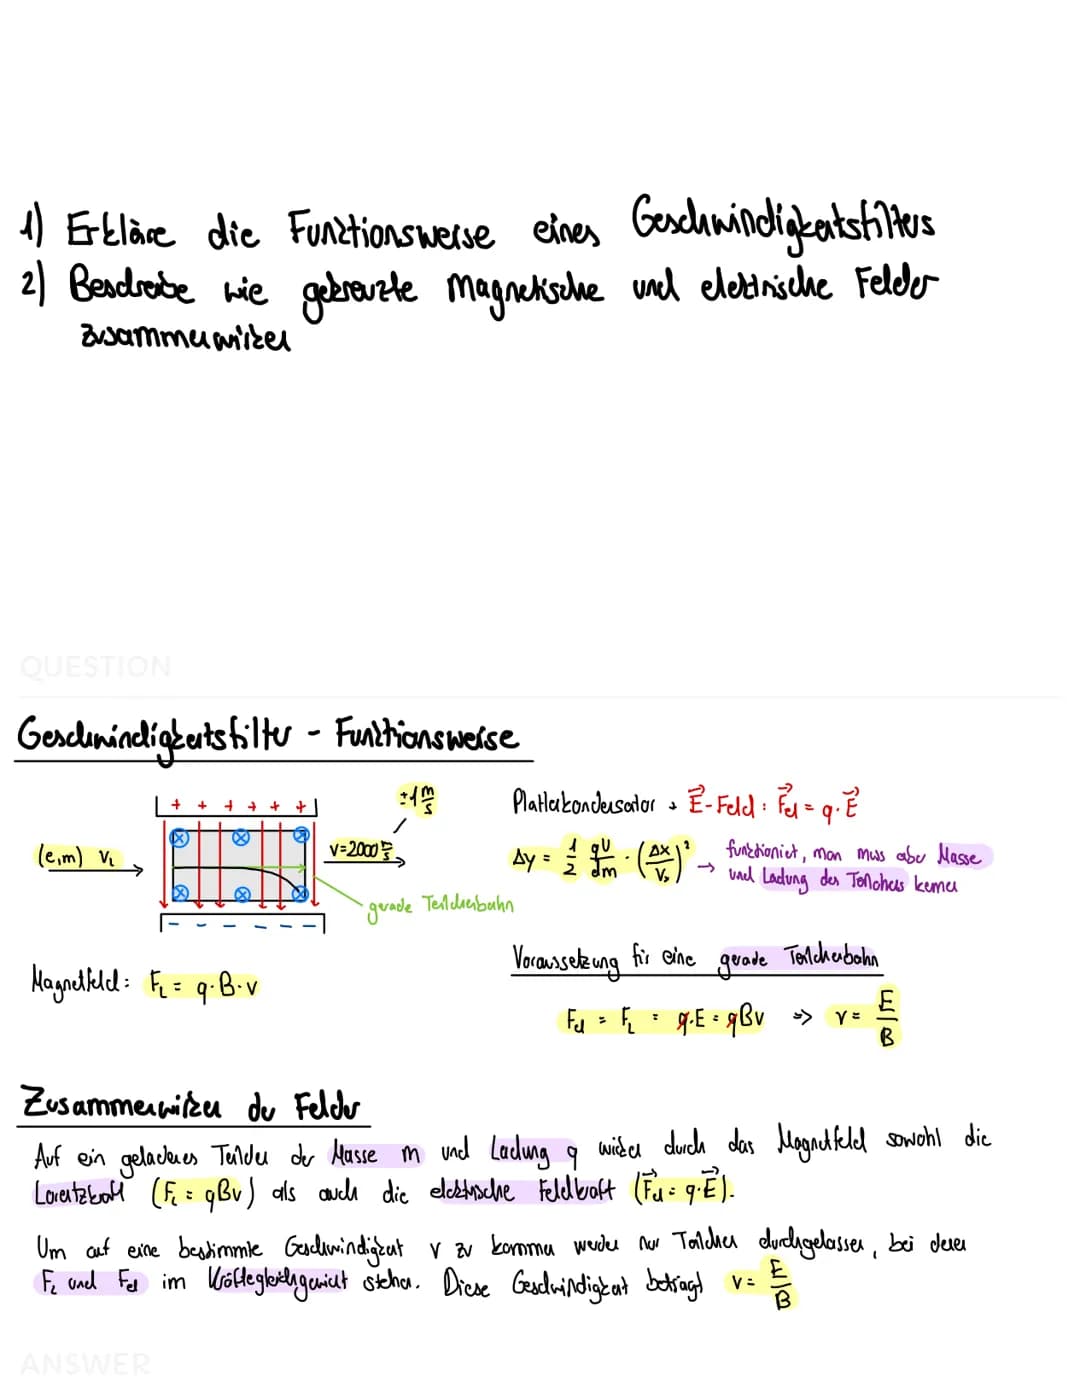 1) Erkläre die Funktionsweise eines Geschwindigkeitsfilters
2) Beschreibe wie gekreuzte Magnetische und elektrische Felder
zusammenwirken
QUESTION
Geschwindigkeitsfilter - Funktionsweise
+ + + + + +
(e,m) v₁
v=2000 m/s
±1 m/s
gerade Teilchenbahn
- - - - - -
Plattenkondensator → E⃗-Feld: F⃗el = q · E⃗
Δy = 1/2 qU/dm · (Δx/vₓ)² → funktioniert, man muss aber Masse
und Ladung des Teilchens kennen
Magnetfeld: F_L = q·B·v
Voraussetzung für eine gerade Teilchenbahn
Fel = F_L = q·E = qBv => v = E/B
Zusammenwirken der Felder
Auf ein geladenes Teilchen der Masse m und Ladung q wirken durch das Magnetfeld sowohl die
Lorentzkraft (F_L = qBv) als auch die elektrische Feldkraft (F⃗el = q·E⃗).
Um auf eine bestimmte Geschwindigkeit v zu kommen werden nur Teilchen durchgelassen, bei denen
F_L und Fel im Kräftegleichgewicht stehen. Diese Geschwindigkeit beträgt v = E/B
ANSWER